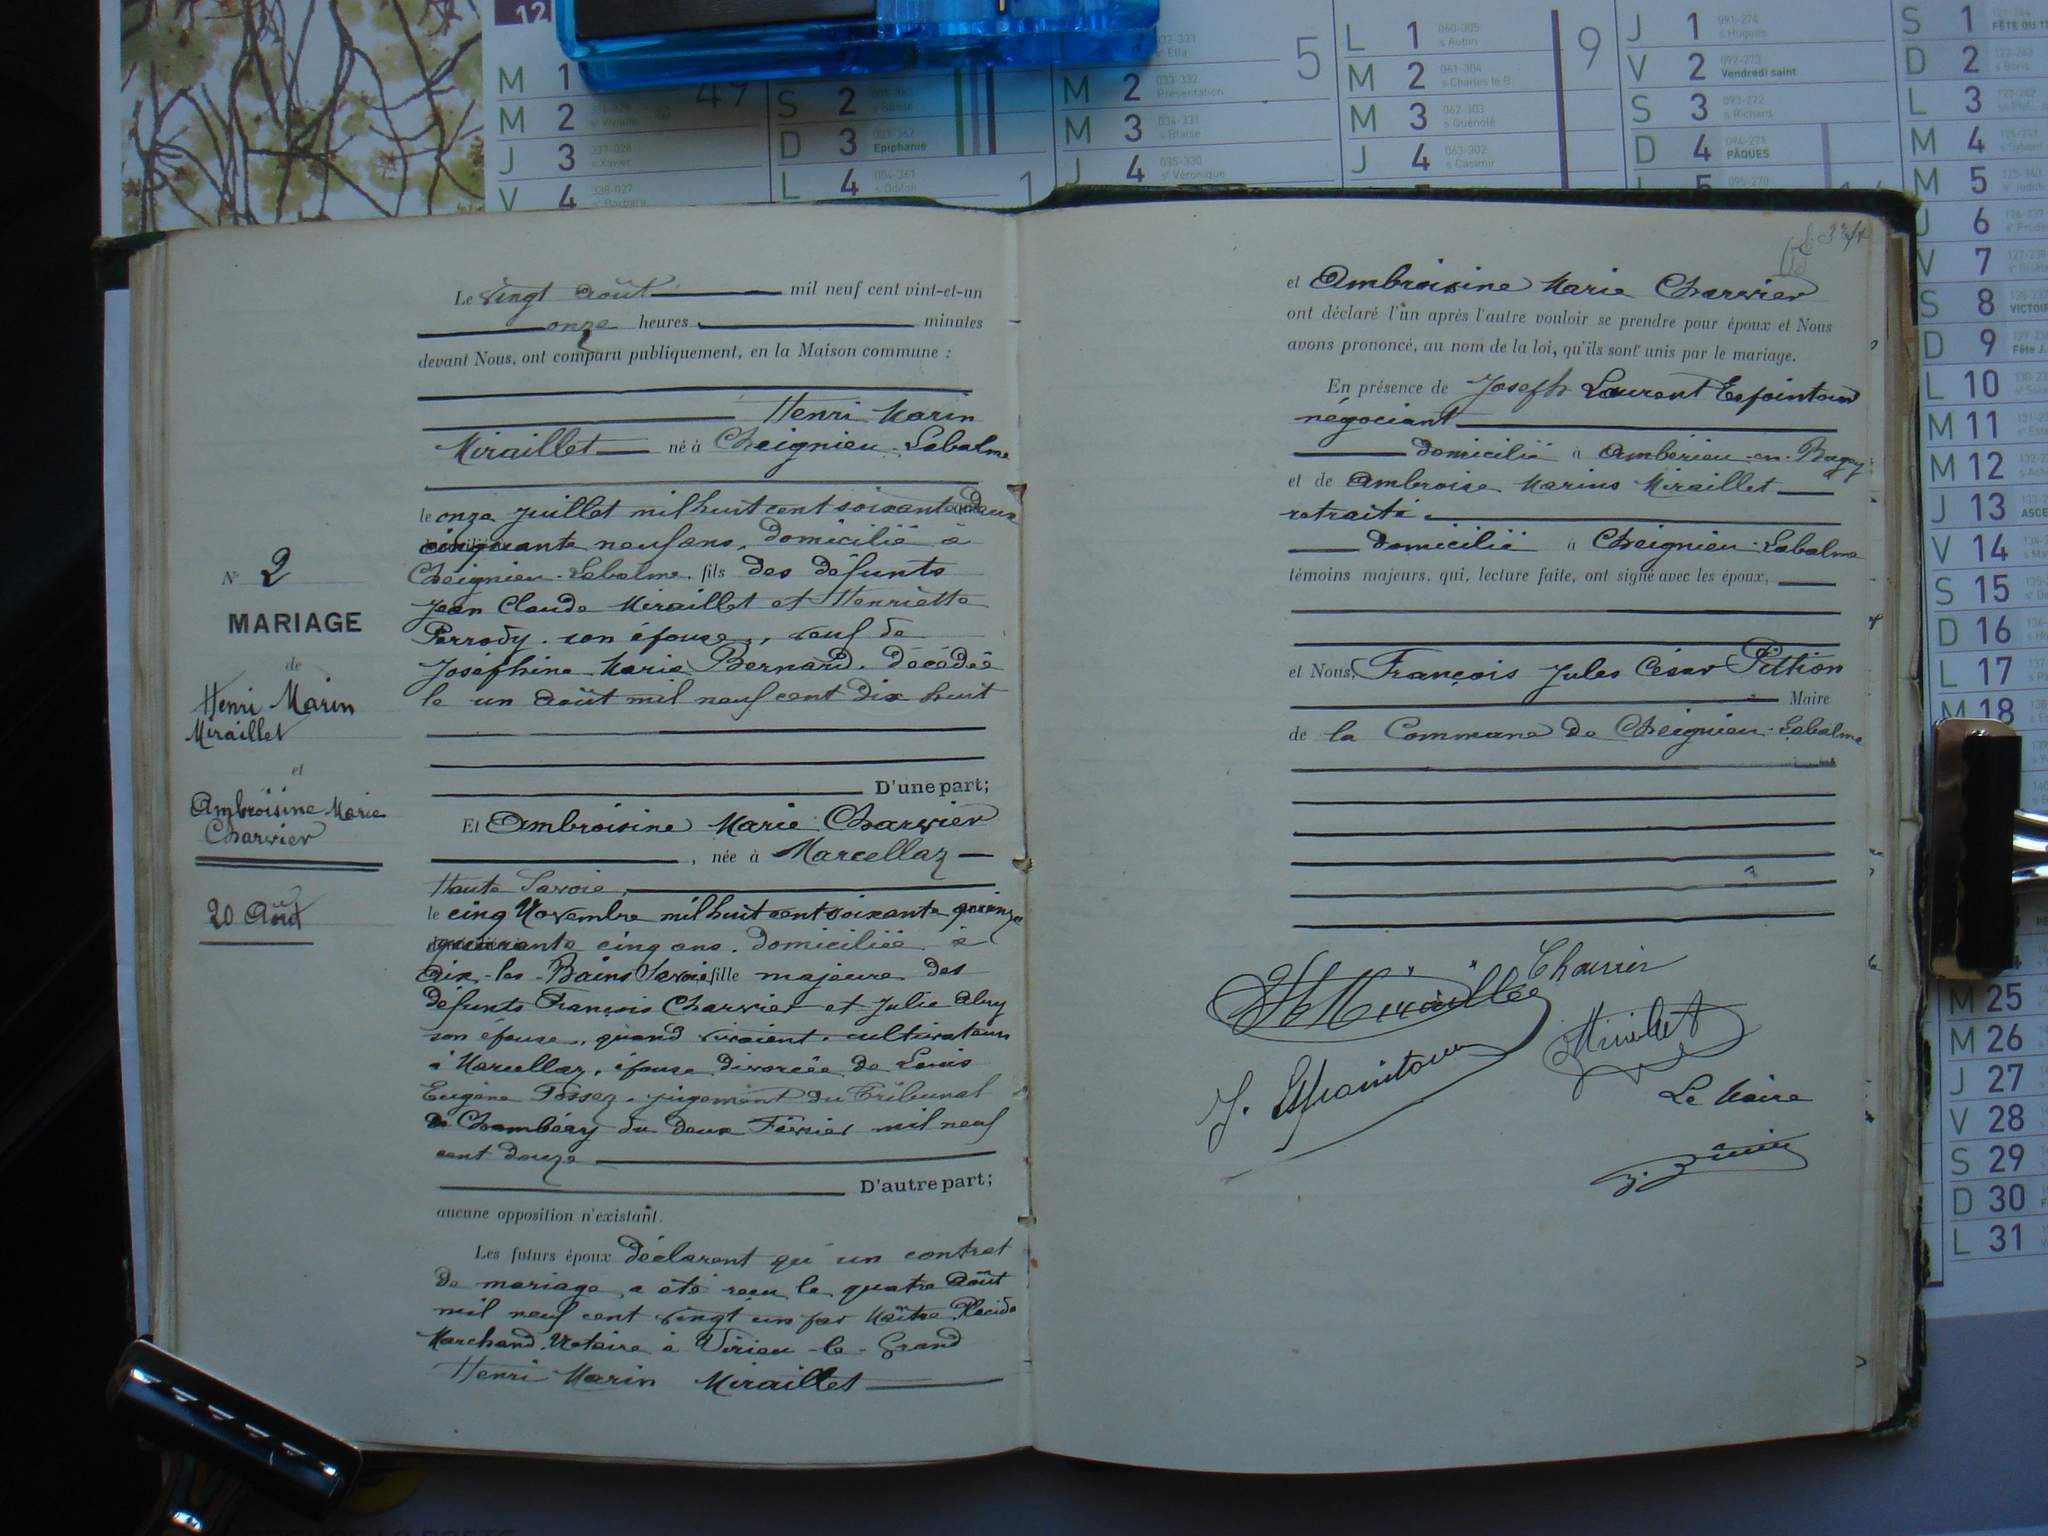 12
M 1
M 2
J 3 337-028 s Xavier
V 4 338-027 se Barbara
49
S 2 s Basile
D 3 Epiphanie
L 4 004-361 s Odilon
1
s Ella
M 2 033-332 Présentation
M 3 034-331 s Blaise
J 4 035-330 se Véronique
5
L 1 060-305 s Aubin
M 2 061-304 s Charles le B.
M 3 062-303 s Guénolé
J 4 063-302 s Casimir
9
J 1 091-274 s Hugues
V 2 092-273 Vendredi saint
S 3 093-272 s Richard
D 4 094-271 PÂQUES
L 5 095-270
S 1 FÊTE DU T
D 2 s Boris
L 3
M 4
M 5
J 6
V 7
S 8 VICTOIR
D 9 Fête J.
L 10
M 11
M 12
J 13 ASCE
V 14
S 15
D 16
L 17
M 18
M 25
M 26
J 27
V 28
S 29
D 30
L 31
Le vingt août mil neuf cent vint-et-un
onze heures minutes
devant Nous, ont comparu publiquement, en la Maison commune :
Henri Marin
Miraillet né à Cheignieu-Labalme
le onze juillet mil huit cent soixante deux
cinquante neuf ans, domicilié à
Cheignieu-Labalme, fils des défunts
Jean Claude Miraillet et Henriette
Perrody, son épouse, veuf de
Joséphine Marie Bernard, décédée
le un août mil neuf cent dix huit
D'une part;
Et Ambroisine Marie Charvier
, née à Marcellaz
Haute Savoie,
le cinq Novembre mil huit cent soixante quinze
quarante cinq ans, domiciliée à
Aix-les-Bains Savoie, fille majeure des
défunts François Charvier et Julie
son épouse, quand vivaient, cultivateurs
à Marcellaz, épouse divorcée de Louis
Eugène jugement du Tribunal
de Chambéry du deux Février mil neuf
cent douze
D'autre part;
aucune opposition n'existant.
Les futurs époux déclarent qu'un contrat
de mariage a été reçu le quatre Août
mil neuf cent vingt un par Maître Placide
Marchand, Notaire à Virieu-le-Grand
Henri Marin Miraillet
N° 2
MARIAGE
de
Henri Marin
Miraillet
et
Ambroisine Marie
Charvier
20 Août
et Ambroisine Marie Charvier
ont déclaré l'un après l'autre vouloir se prendre pour époux et Nous
avons prononcé, au nom de la loi, qu'ils sont unis par le mariage.
En présence de Joseph Laurent Espointour
négociant
domicilié à Ambérieu-en-Bugey
et de Ambroise Marius Miraillet
retraité
domicilié à Cheignieu-Labalme
témoins majeurs, qui, lecture faite, ont signé avec les époux,
et Nous, François Jules César Pittion
Maire
de la Commune de Cheignieu-Labalme
Miraillet Charvier
J. Espointour Miraillet
Le Maire